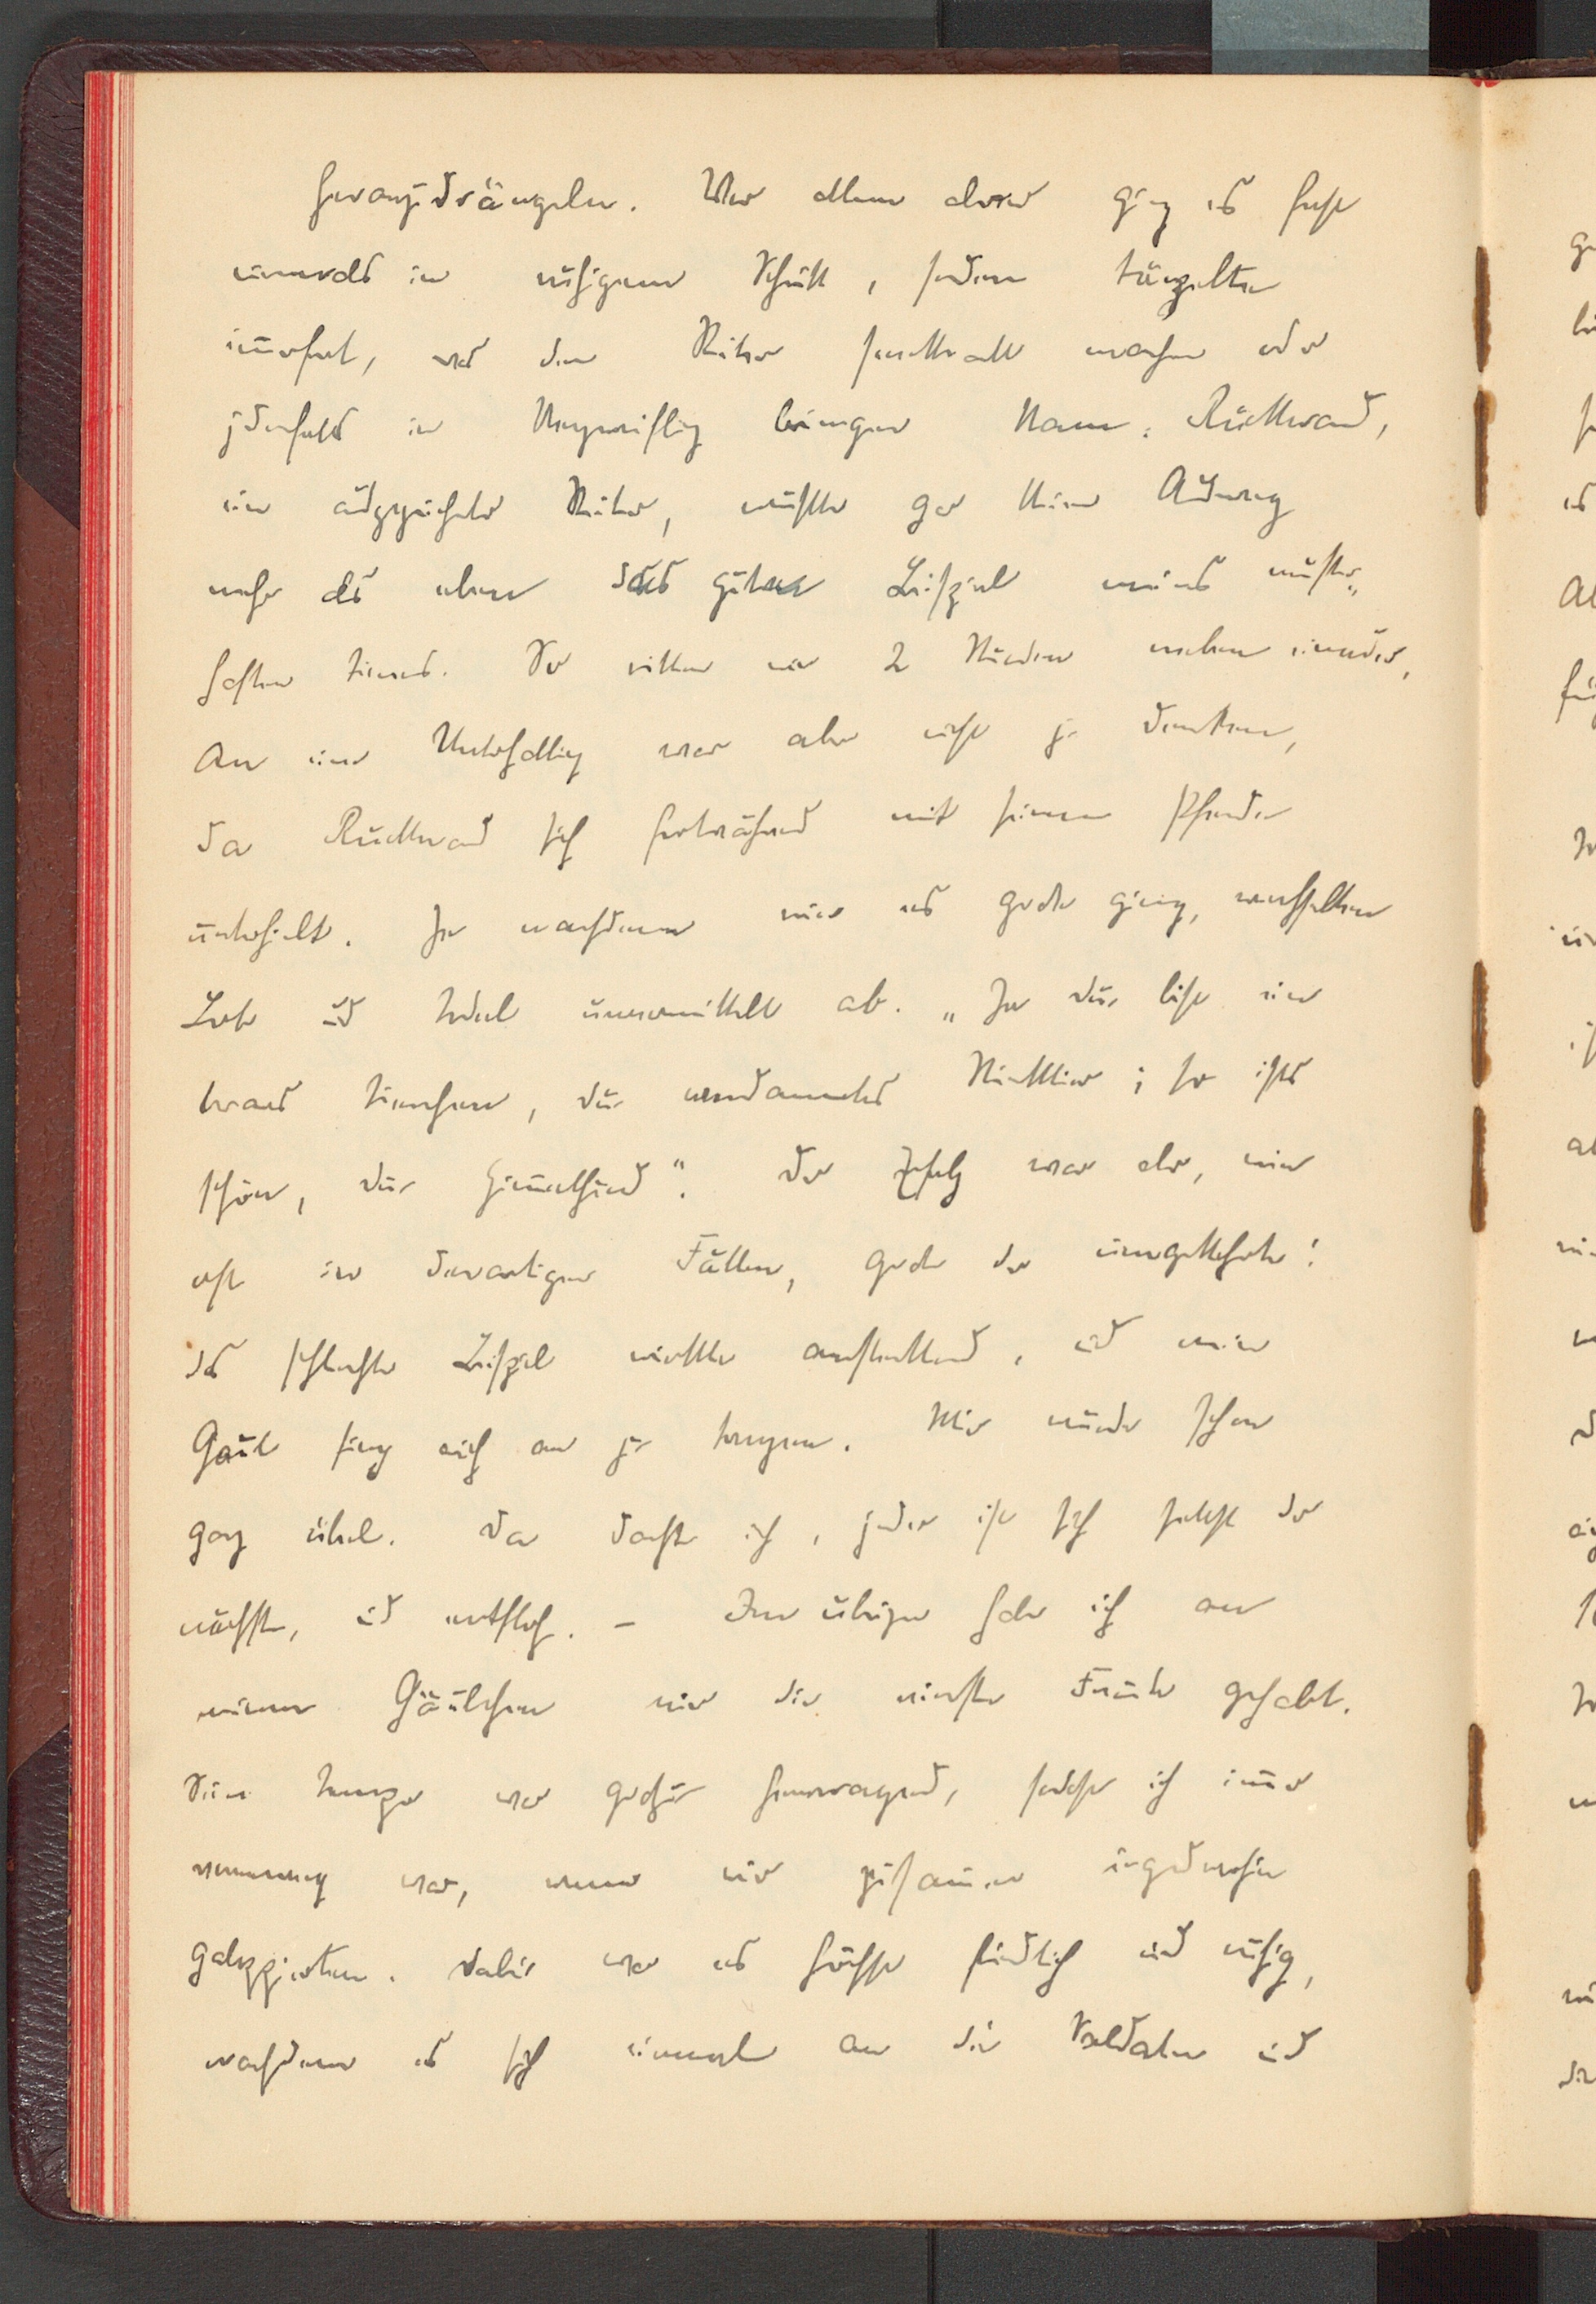 heranzudrängeln. Vor allem aber ging es fast
niemals in ruhigem Schritt, sondern tänzelte
immerfort, was den Reiter seekrank machen oder
jedenfalls in Verzweiflung bringen kann. Rückward,
ein ausgezeichneter Reiter, wußte gar keinen Ausweg
mehr als eben das gute Beispiel meines muster-
haften Tieres. So ritten wir 2 Stunden neben einander,
An eine Unterhaltung war aber nicht zu denken,
da Rückward sich fortwährend mit seinem Pferde
unterhielt. Je nachdem wie es grade ging, wechselten
Lob und Tadel unvermittelt ab. „Ja du bist ein
braves Tierchen, du verdammtes Mistvieh; so ists
schön, du Himmelhund“. Der Erfolg war aber, wie
oft in derartigen Fällen, grade der umgekehrte:
das schlechte Beispiel wirkte ansteckend, und mein
Gaul fing auch an zu tanzen. Mir wurde schon
ganz übel. Da dachte ich, jeder ist sich selbst der
nächste, und entfloh. – Im übrigen habe ich an
meinem Gäulchen nur die reinste Freude gehabt.
Sein Tempo war gradezu hervorragend, sodaß ich immer
vorneweg war, wenn wir zusammen irgendwohin
galoppierten. Dabei war es höchst friedlich und ruhig,
nachdem es sich einmal an die Soldaten und